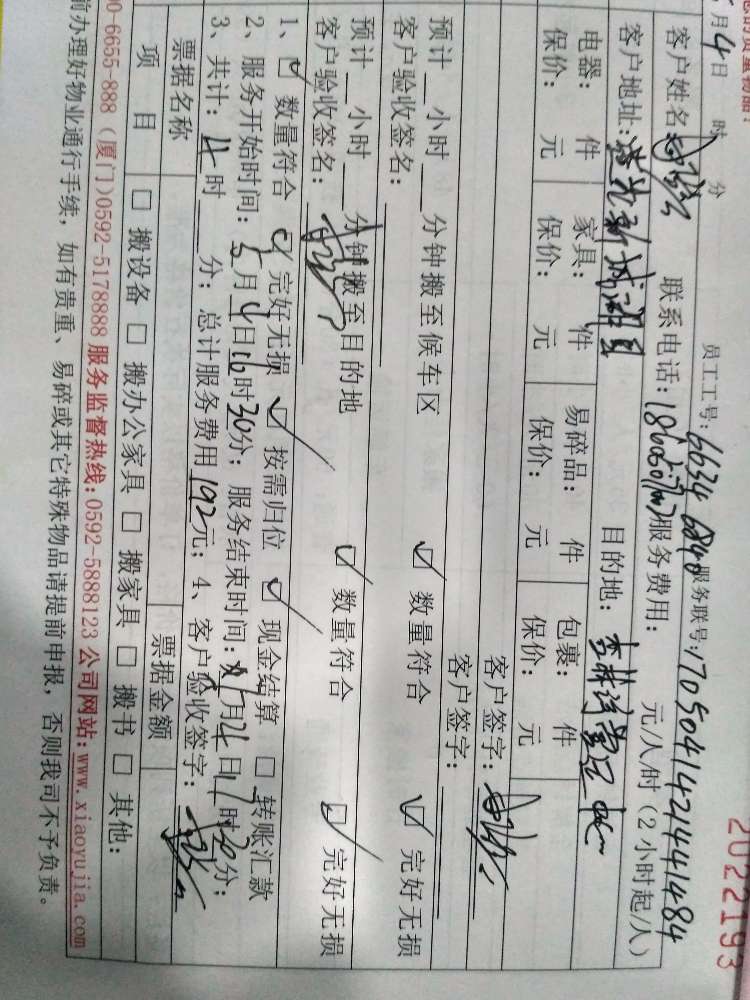 2022193
月4日 时 分 员工工号:6634 6840 服务联号:170504142144484
客户姓名: 联系电话: 服务费用: 元/人/时(2小时起/人)
客户地址: 新城 目的地: 杏林
电器: 件 家具: 件 易碎品: 件 包裹: 件
保价: 元 保价: 元 保价: 元 保价: 元
客户签字:
客户签字:
预计 小时 分钟搬至候车区 ☑ 数量符合 ☑ 完好无损
客户验收签名:
预计 小时 分钟搬至目的地 ☑ 数量符合 ☑ 完好无损
客户验收签名:
1、☑ 数量符合 ☑ 完好无损 ☑ 按需归位 ☑ 现金结算 □ 转账汇款
2、服务开始时间: 5月4日16时30分; 服务结束时间: 月4日 时 分;
3、共计: 4时 分; 总计服务费用192元; 4、客户验收签字:
票据名称 票据金额
项 目 □ 搬设备 □ 搬办公家具 □ 搬家具 □ 搬书 □ 其他:
00-6655-888 (厦门)0592-5178888 服务监督热线:0592-5888123 公司网站:www.xiaoyujia.com
前办理好物业通行手续,如有贵重、易碎或其它特殊物品请提前申报,否则我司不予负责。